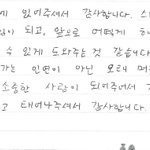 에 있어주셔서 감사합니다. 스
이 되고, 앞으로 어떻게
수 있게 도와주는 것 같습니다
가는 인연이 아닌 오래
소중한 사람이 되어주셔서
고 태어나주셔서 감사합니다.